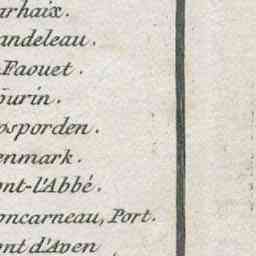 arhaix.
andeleau.
Faouet.
ourin.
osporden.
enmark.
ont-l'Abbé.
oncarneau, Port.
ont d'Aven